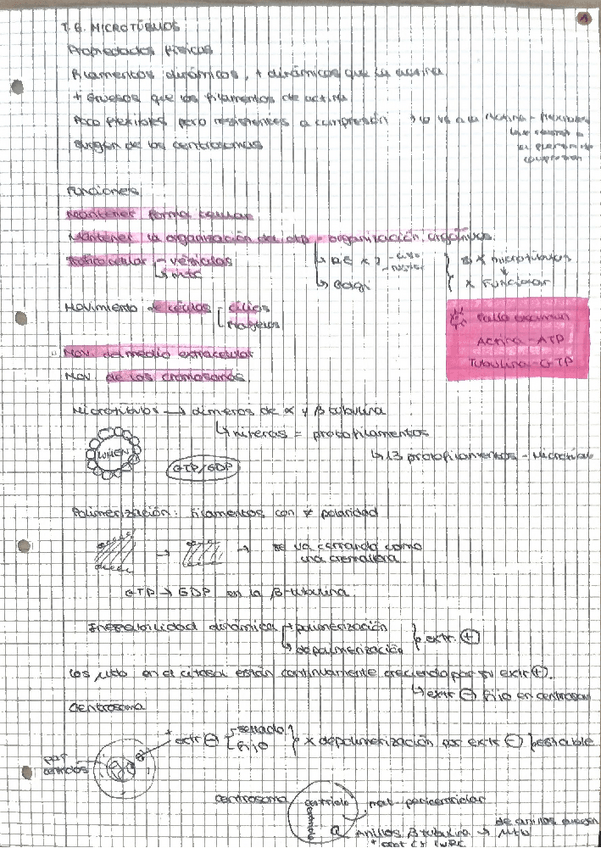 1
T.6. MICROTÚBULOS
Propiedades físicas
Filamentos dinámicos, + dinámicos que la actina
+ Gruesos que los filamentos de actina
Poco flexibles pero resistentes a compresión
Surgen de los centrosomas
Funciones
Mantener forma celular
Mantener la organización del - organización orgánulos
Tráfico celular - vesículas
Golgi
x microtúbulos
x Funcionar
Movimiento de células - cilios
flagelos
Mov. del medio extracelular
Mov. de los cromosomas
Fallo examen
Actina - ATP
Tubulina - GTP
Microtúbulos → dímeros de α y β tubulina
hileras = protofilamentos
↳ 13 protofilamentos - Microtub
LUMEN
GTP/GDP
Polimerización: Filamentos con ≠ polaridad
→ → se va cerrando como
una cremallera
GTP → GDP en la β-tubulina
Inestabilidad dinámica polimerización
depolimerización } extr. ⊕
Los µtb en el citosol están continuamente creciendo por su extr ⊕.
↳ extr ⊖ fijo en centrosom
Centrosoma
extr ⊖ sellado
fijo } x depolimerización por extr ⊖ estable
par
centriolos
centrosoma
centriolo
mat. pericentriolar
Anillos tubulina →
de anillos surgen